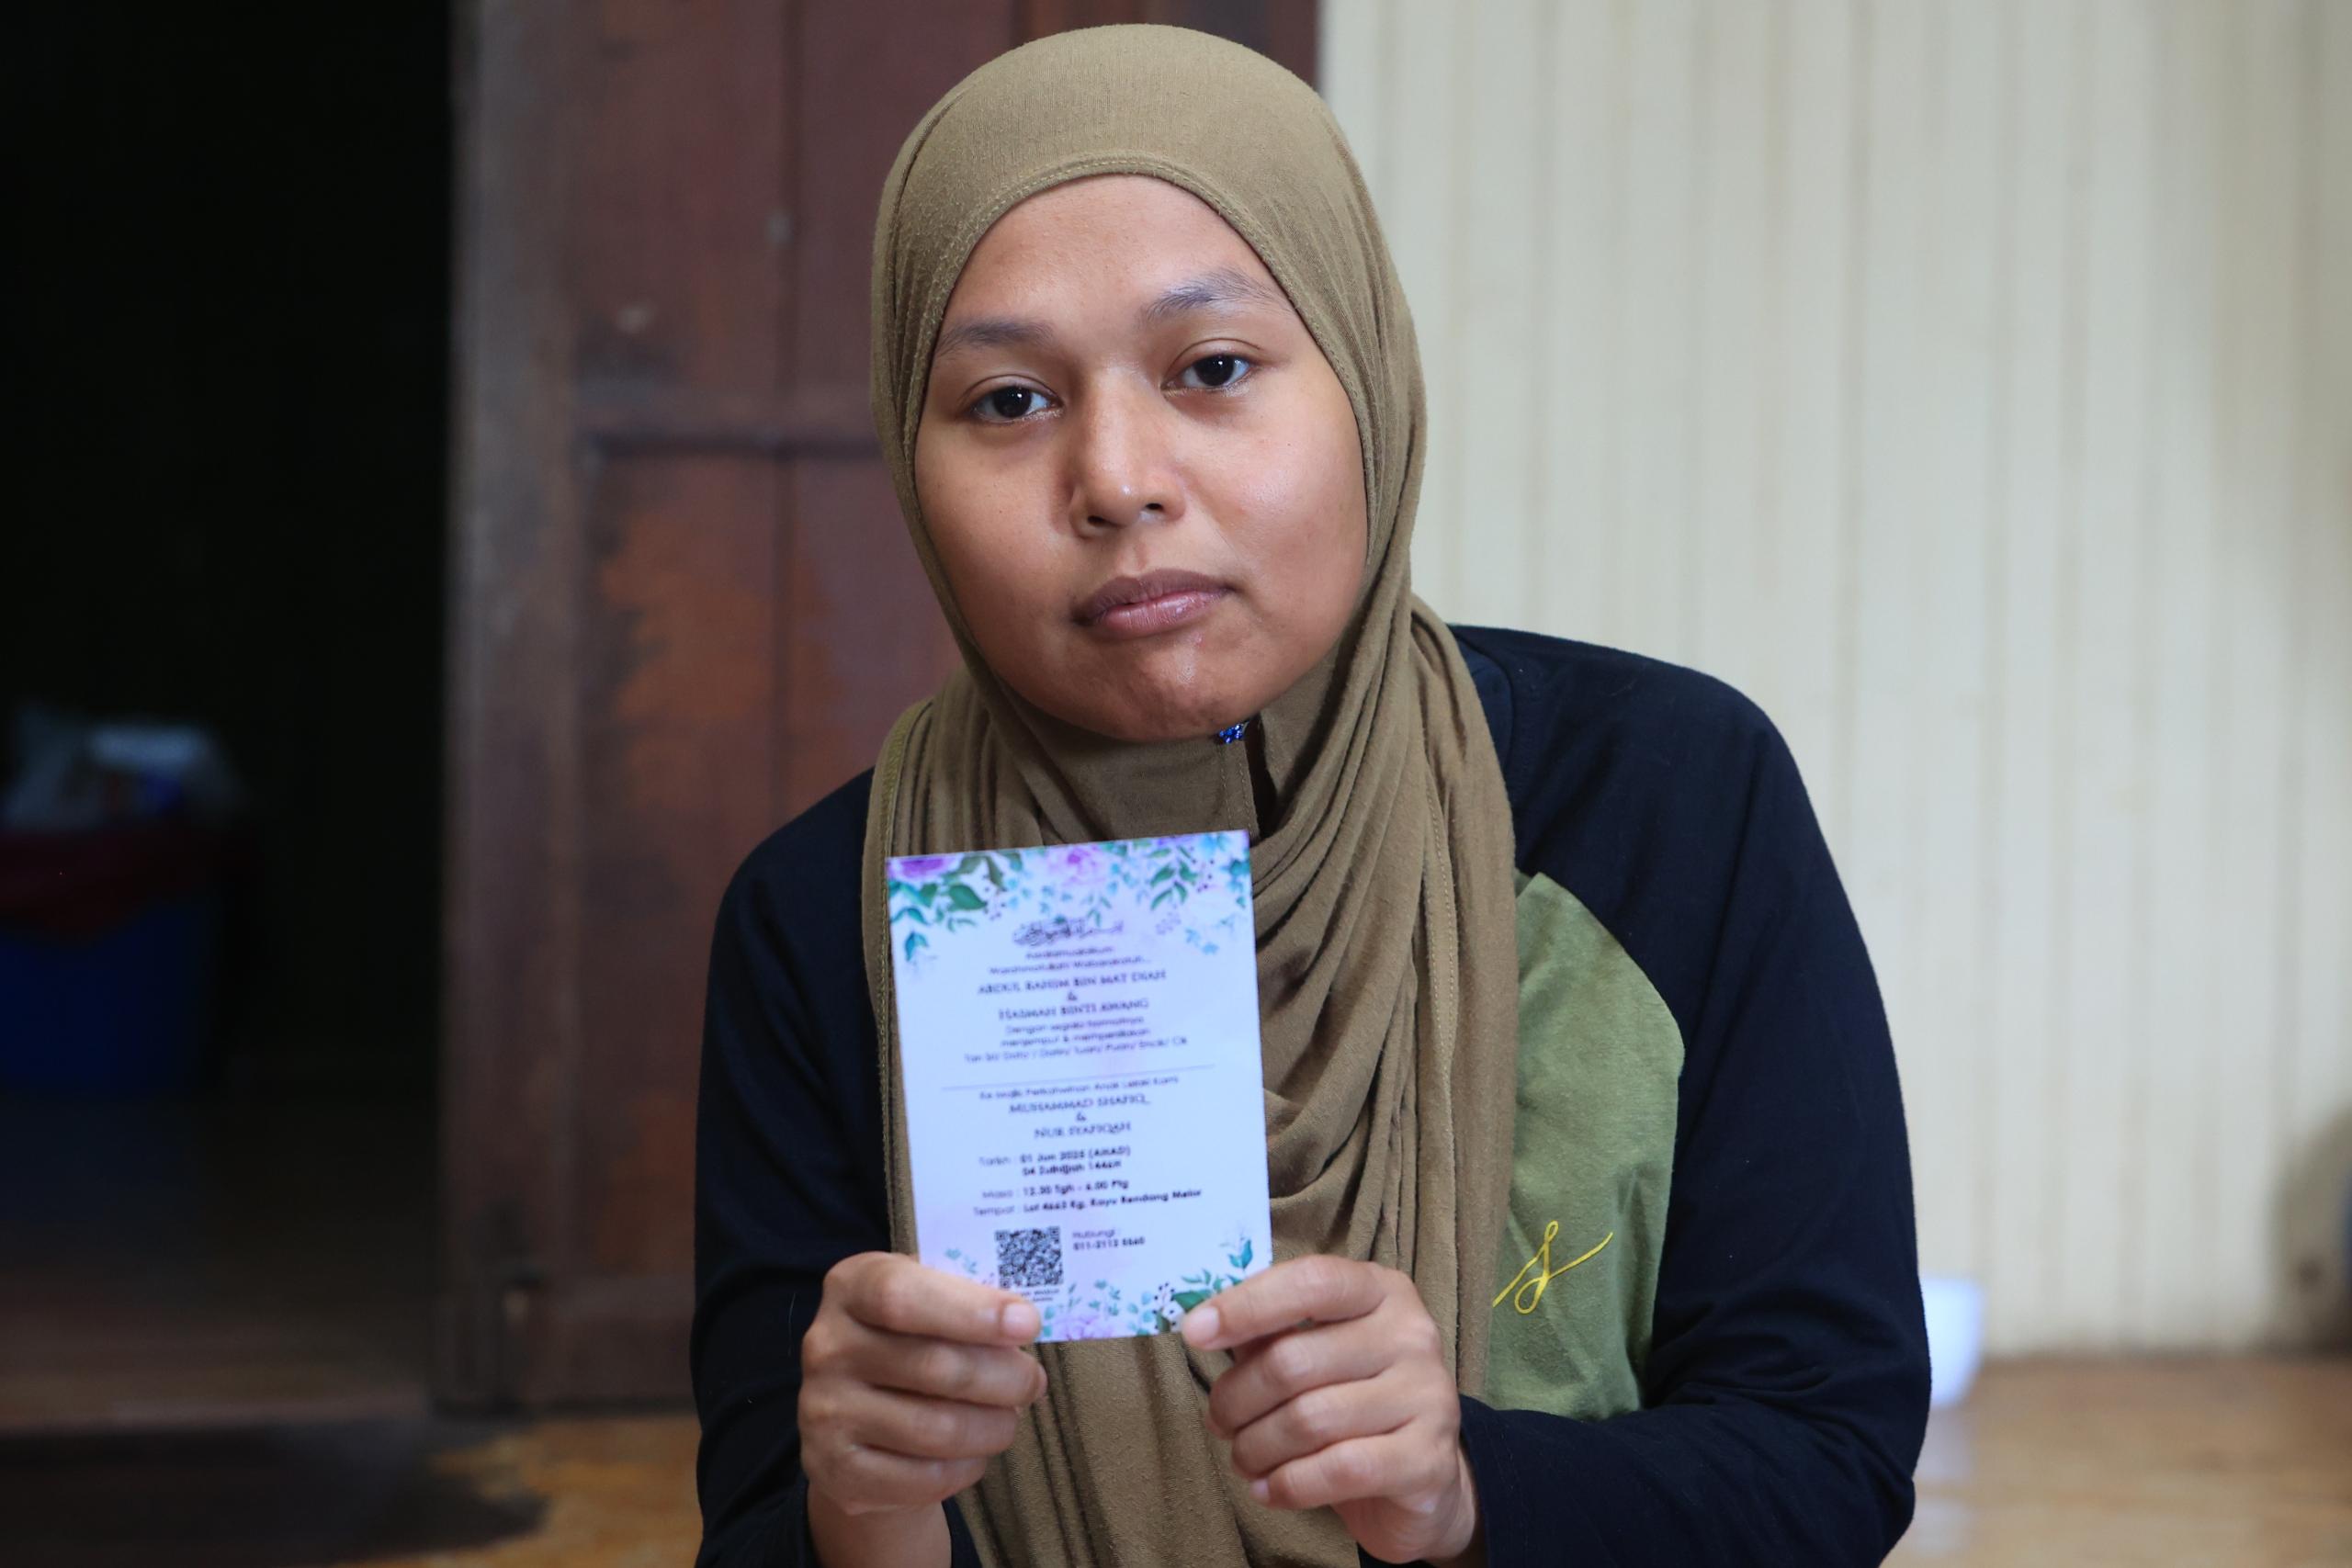 Assalamualaikum
Warahmatullahi Wabarakatuh...
ABDUL RAHIM BIN MAT DIAH
&
HASMAH BINTI AWANG
Dengan segala hormatnya
menjemput & mempersilakan
Tan Sri/ Dato'/ Datin/ Tuan/ Puan/ Encik/ Cik
Ke Majlis Perkahwinan Anak Lelaki Kami
MUHAMMAD SHAFIQ
&
NUR SYAFIQAH
Tarikh : 01 Jun 2025 (AHAD)
04 Zulhijjah 1446H
Masa : 12.30 Tgh - 6.00 Ptg
Tempat : Lot 4663 Kg. Kayu Rendang Melor
Hubungi :